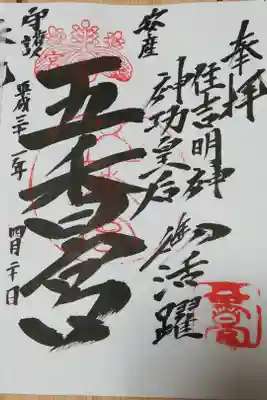 奉拝
住吉明神
神功皇后
御活躍
安産
五香宮
守護
平成三十一年 四月二十日